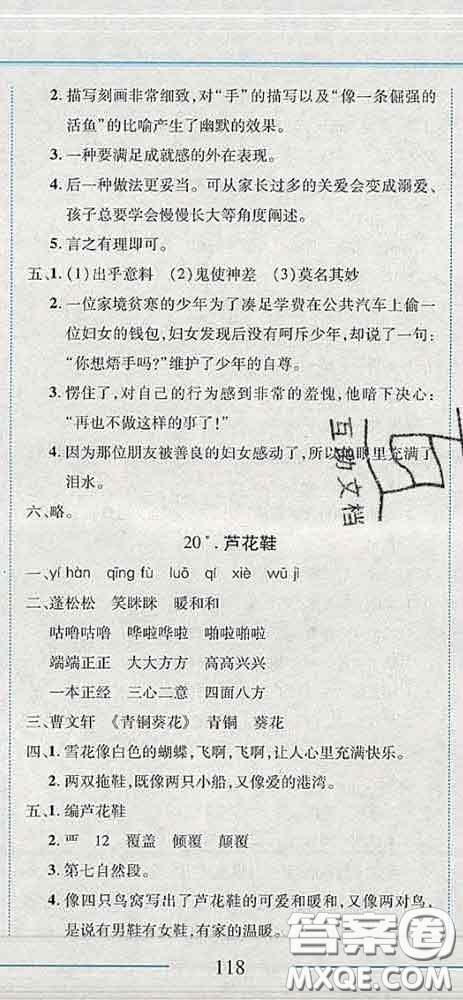 2. 描写刻画非常细致,对“手”的描写以及“像一条倔强的
活鱼”的比喻产生了幽默的效果。
3. 一种要满足成就感的外在表现。
4. 后一种做法更妥当。可从家长过多的关爱会变成溺爱、
孩子总要学会慢慢长大等角度阐述。
5. 言之有理即可。
五、1. (1)出乎意料 (2)鬼使神差 (3)莫名其妙
2. 一位家境贫寒的少年为了凑足学费在公共汽车上偷一
位妇女的钱包,妇女发现后没有呵斥少年,却说了一句:
“你想焐手吗?”维护了少年的自尊。
3. 愣住了,对自己的行为感到非常的羞愧,他暗下决心:
“再也不做这样的事了!”
4. 因为那位朋友被善良的妇女感动了,所以眼里充满了
泪水。
互助文档
六、略。
20*. 芦花鞋
一、yí hàn qīng fù luǒ qí xiè wū jì
二、蓬松松 笑眯眯 暖和和
咕噜咕噜 哗啦哗啦 啪啦啪啦
端端正正 大大方方 高高兴兴
一本正经 三心二意 四面八方
三、曹文轩 《青铜葵花》 青铜 葵花
四、1. 雪花像白色的蝴蝶,飞啊,飞啊,让人心里充满快乐。
2. 两双拖鞋,既像两只小船,又像爱的港湾。
五、1. 编芦花鞋
2. 覀 12 覆盖 倾覆 颠覆
3. 第七自然段。
4. 像四只鸟窝写出了芦花鞋的可爱和暖和,又像两对鸟,
是说有男鞋有女鞋,有家的温暖。
118
答案圈
MXQE.COM